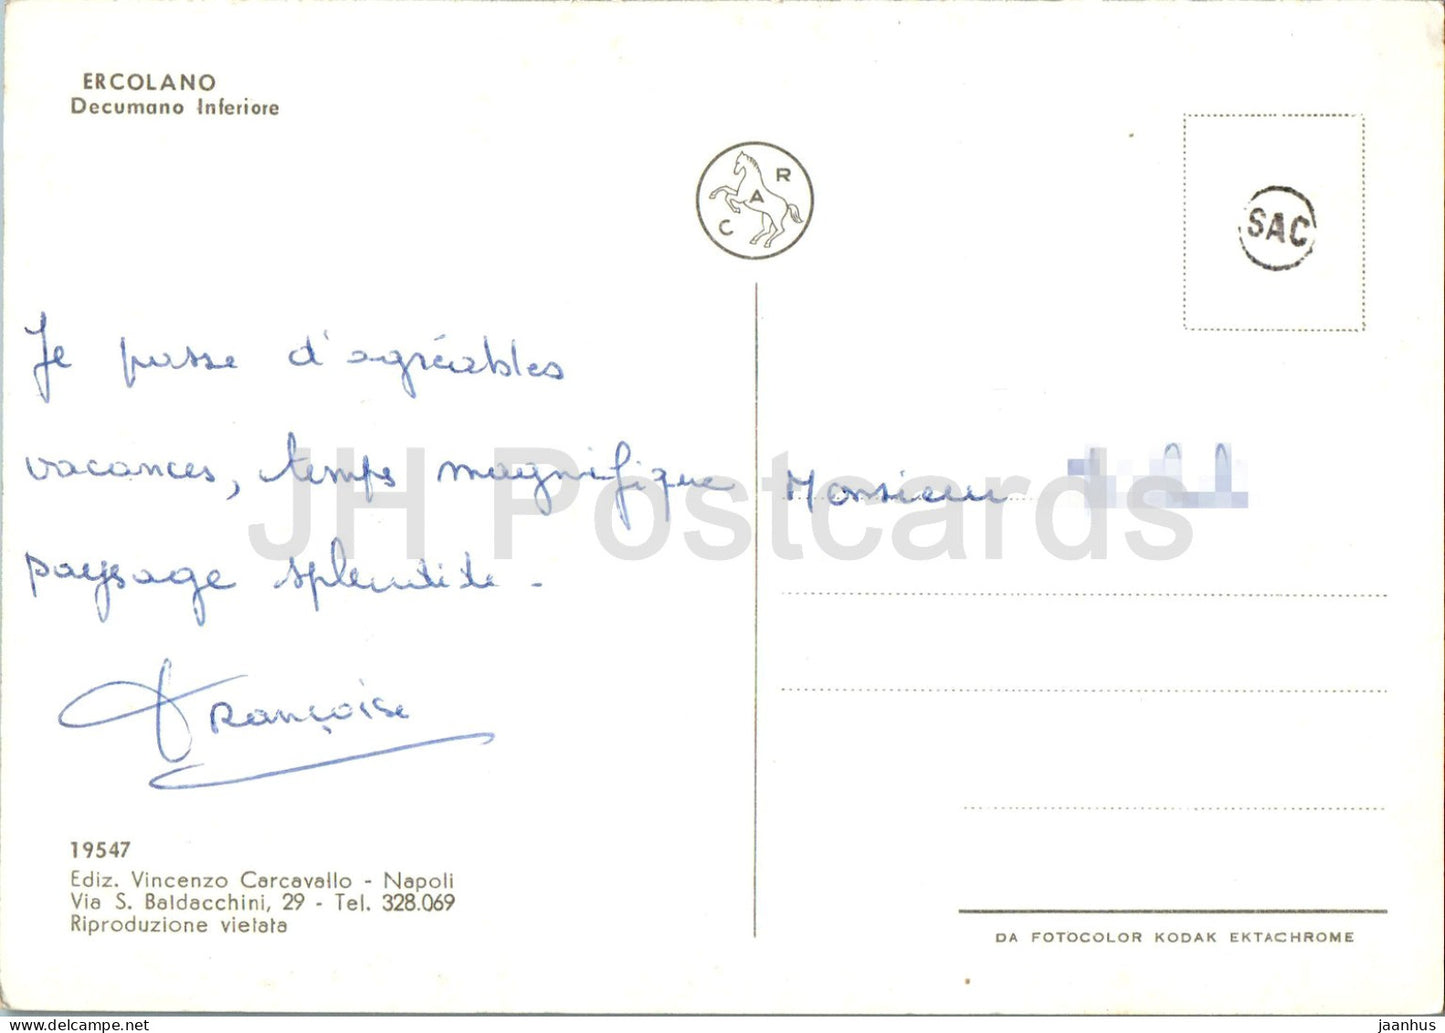 ERCOLANO
Decumano Inferiore
C A R
SAC
Je passe d'agréables
vacances, temps magnifique
paysage splendide -
Françoise
Monsieur
JH Postcards
19547
Ediz. Vincenzo Carcavallo - Napoli
Via S. Baldacchini, 29 - Tel. 328.069
Riproduzione vietata
DA FOTOCOLOR KODAK EKTACHROME
jaanhus